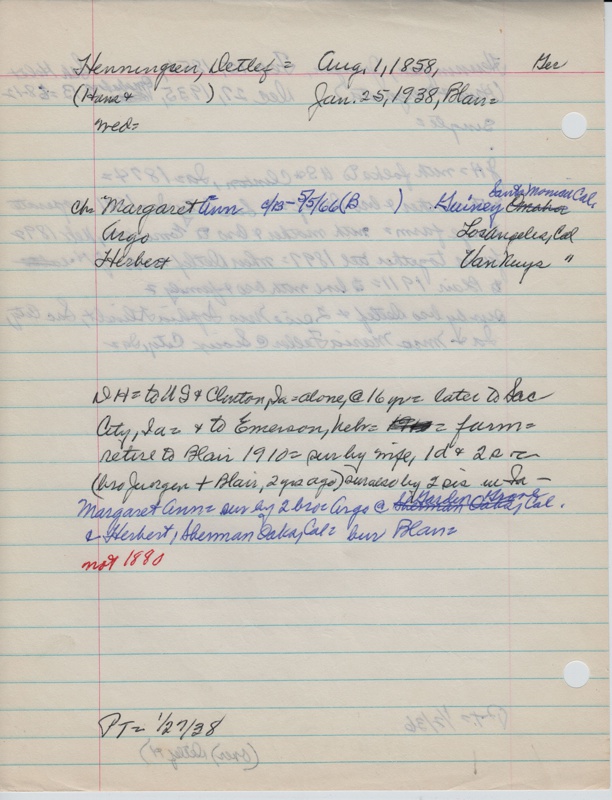 Henningsen, Detlef = Aug. 1, 1858, Ger
(Hans & ) Jan. 25, 1938, Blair=
wed=
Santa Monica Cal.
chn Margaret Ann c/B- 5/5/66 (B ) Guiney Omaha
Argo Los Angeles, Cal
Herbert Van Nuys "
DH= to US & Clinton, Ia= alone, @ 16 yr= later to Sac
City, Ia= & to Emerson, Nebr= 1910= farm=
retire to Blair 1910= sur by wife, 1d & 2s =
(bro Juergen + Blair, 2 yrs ago) sur also by 2 sis in Ia -
Margaret Ann= sur by 2 bro= Argo @ Garden Grove Sherman Oaks, Cal.
& Herbert, Sherman Oaks, Cal= bur Blair=
not 1880
PT= 1/27/38